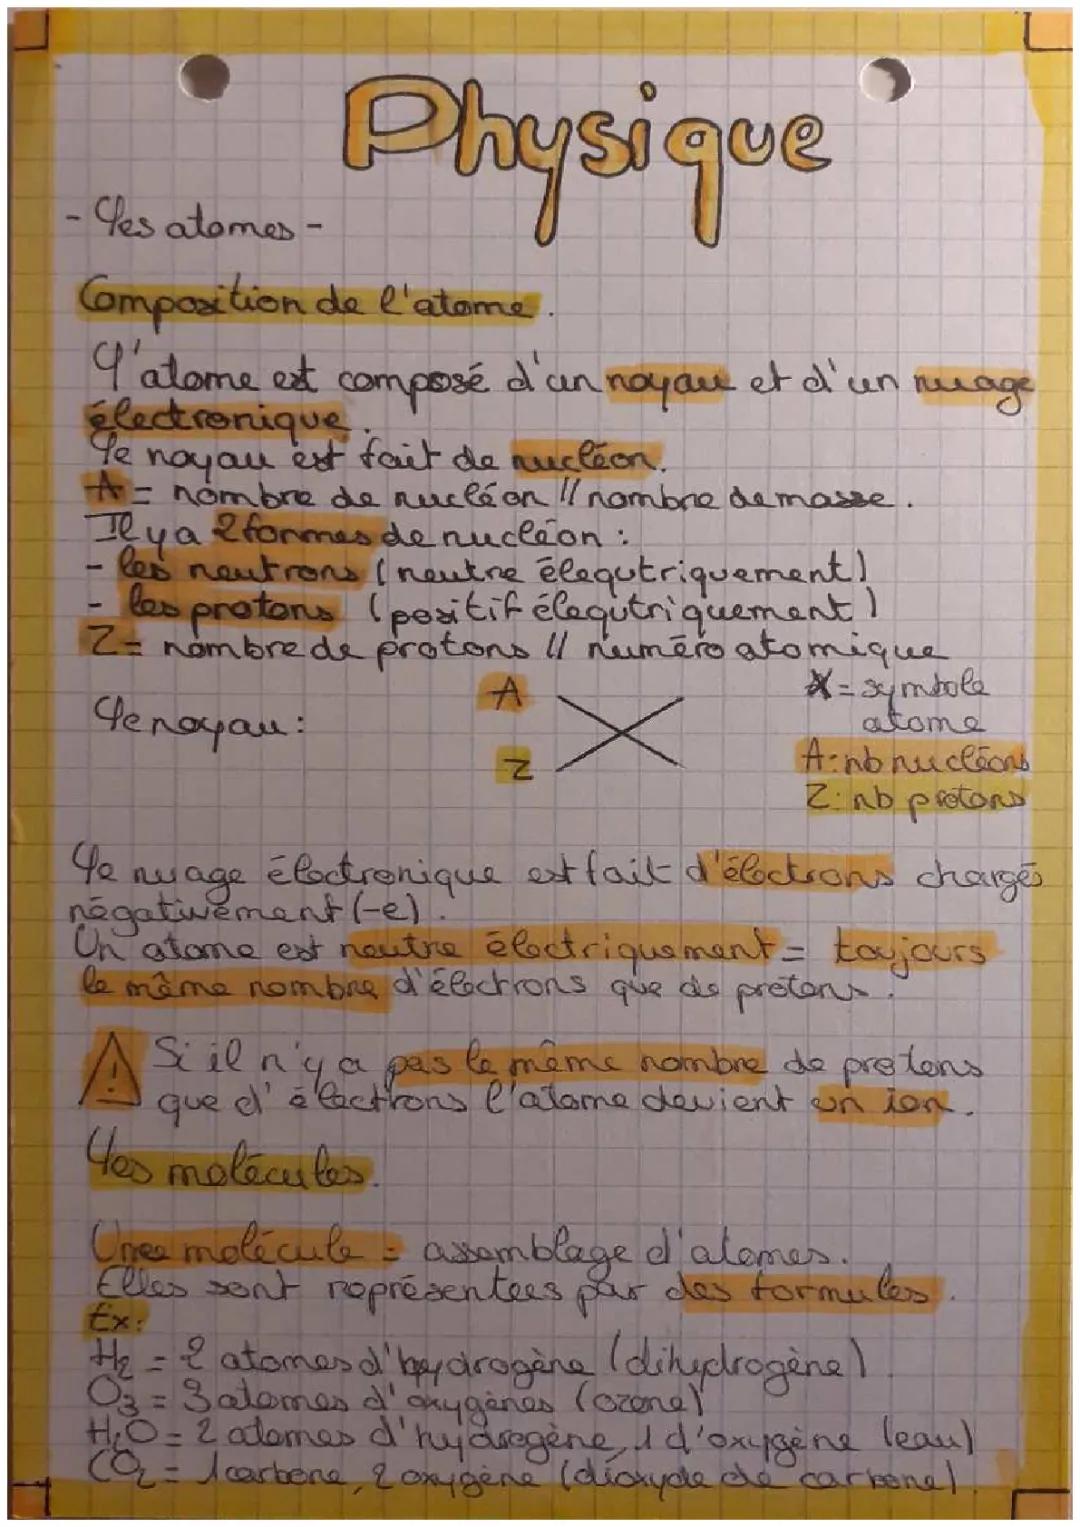 Physique
- Les atomes -
Composition de l'atome.
L'atome est composé d'un noyau et d'un nuage
électronique.
Le noyau est fait de nucléon.
A = nombre de nucléon // nombre de masse.
Il y a 2 formes de nucléon :
- les neutrons (neutre élequtriquement)
- les protons (positif élequtriquement)
Z = nombre de protons // numéro atomique
Le noyau :
A
Z
X
X = symbole
atome
A : nb nucléons
Z : nb protons
Le nuage électronique est fait d'électrons chargés
négativement (-e).
Un atome est neutre électriquement = toujours
le même nombre d'électrons que de protons.
! Si il n'y a pas le même nombre de protons
que d'électrons l'atome devient un ion.
Les molécules.
Unee molécule = assemblage d'atomes.
Elles sont représentées par des formules.
Ex :
H₂ = 2 atomes d'hydrogène (dihydrogène)
O₃ = 3 atomes d'oxygènes (ozone)
H₂O = 2 atomes d'hydrogène, 1 d'oxygène (eau)
CO₂ = 1 carbone, 2 oxygène (dioxyde de carbone).